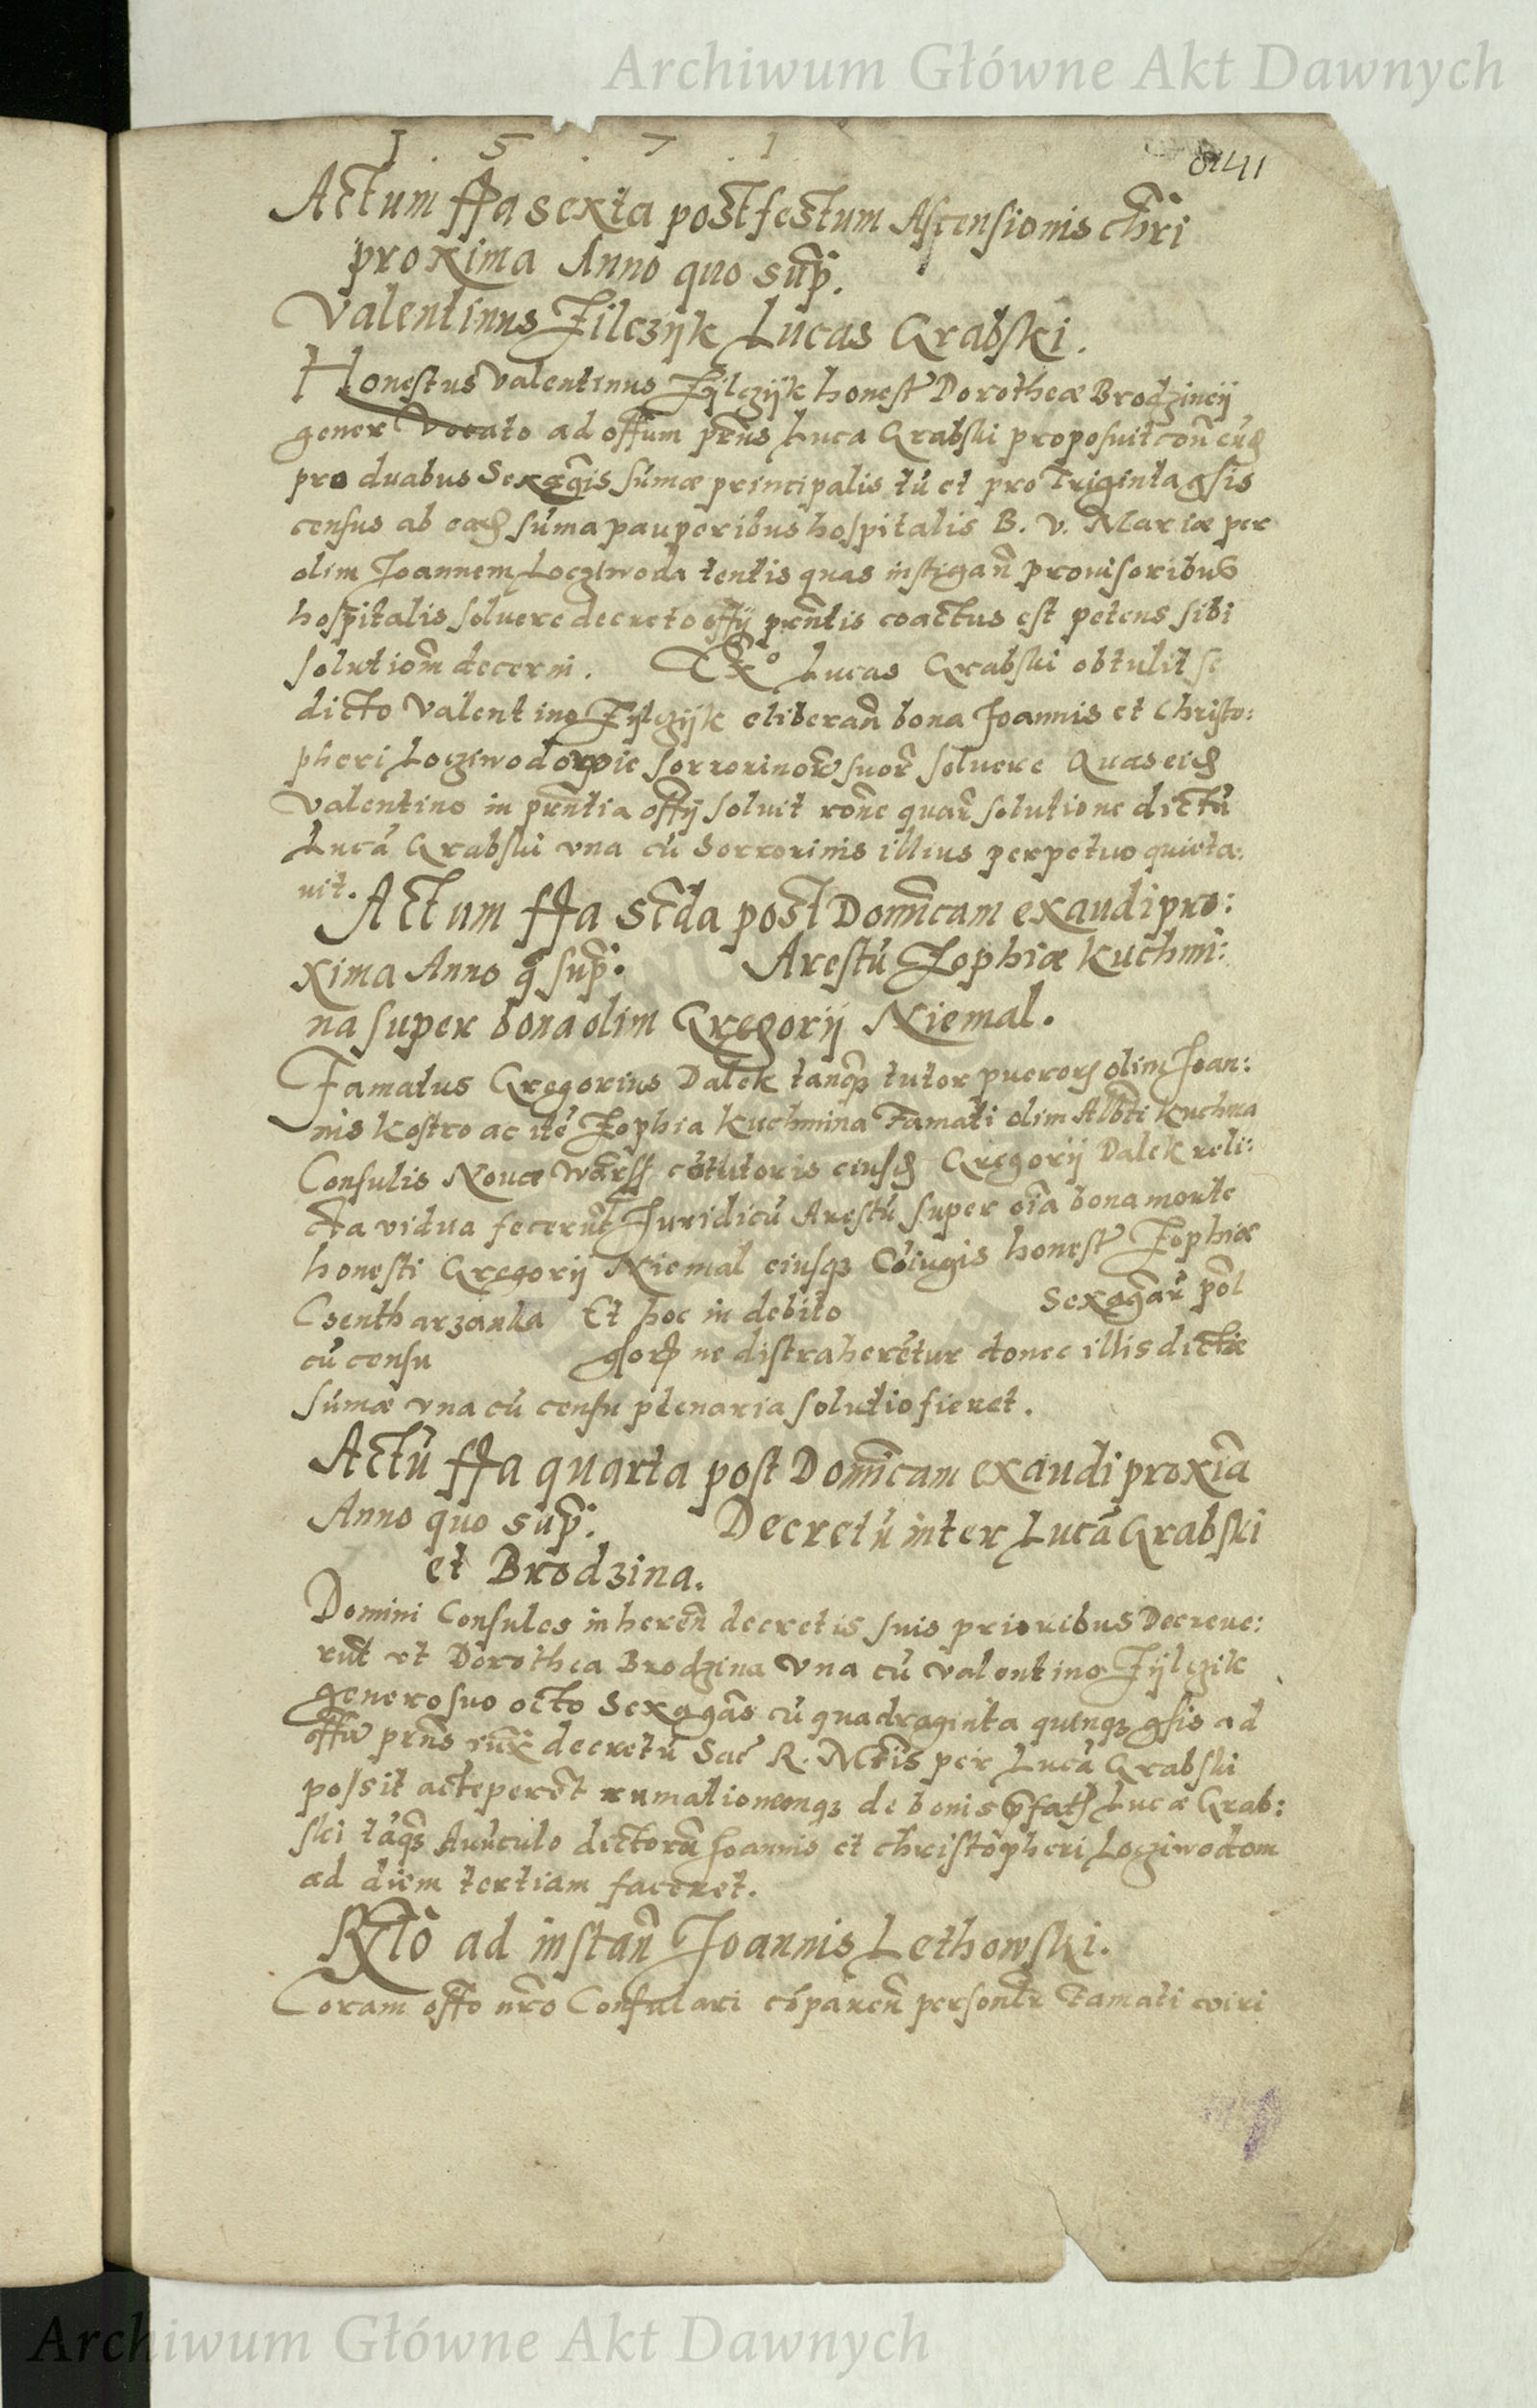 Archiwum Główne Akt Dawnych
1 . 5 . 7 . 1
Actum ffa sexta post festum Ascensionis Chri
proxima Anno quo sup.
Valentinus Zilczyk Lucas Grabski.
Honestus Valentinus Zylczyk honest Dorotheæ Brodzincij
gener Vocato ad offum prns Luca Grabski proposuit
pro duabus Sexagis sumæ principalis tu et pro Triginta gsis
census ab ead suma pauperibus hospitalis B. V. Mariæ per
olim Joannem Locziwoda tentis quas instigan prouisoribus
hospitalis soluere decreto offy prntis coactus est petens sibi
solutiom decerni. Lucas Grabski obtulit se
dicto Valentino Zylczyk eliberan bona Joannis et Christo:
pheri sororinor suor soluere Quas eid
Valentino in prntia offy soluit rone quar solutione dictu
Luca Grabski vna cu Sorrorinis illius perpetuo quieta:
uit. Actum ffa scda post Domicam exaudi pro:
xima Anno q sup. Arestu Zophiæ Kuchmi:
na super bona olim Gregorij Niemal.
Famatus Gregorius Dalek tanq tutor pueror olim Joan:
nis Kostro ac ite Zophia Kuchmina Famati olim Albti Kuchma
Consulis Nouæ Warss cotutoris eiusd Gregorij Dalek reli:
cta vidua fecerut Juridicu Arestu super oia bona morte
honesti Gregorij Niemal eiusq Coiugis honest Zophiæ
Csentharzanka Et hoc in debito Sexagar pol
cu censu gsor ne distraheretur donec illis dictæ
sumæ vna cu censu plenaria solutio fieret.
Actu ffa quarta post Domicam exaudi proxia
Anno quo sup. Decretu inter Luca Grabski
et Brodzina.
Domini Consules inheren decretis suis prioribus Decreue:
rut vt Dorothea Brodzina vna cu Valentino Zylczik
genero suo octo Sexagas cu quadraginta quinq gsis ad
offu prns decretu Sac R. Mtis per Luca Grabski
possit acteperet rumationemq de bonis Lucæ Grab:
ski taq Auuculo dictoru Joannis et Christopheri Locziwodom
ad diem tertiam faceret.
ad instan Joannis Lethowski.
Coram offo nro Consulari coparen personlr Famati viri
Archiwum Główne Akt Dawnych